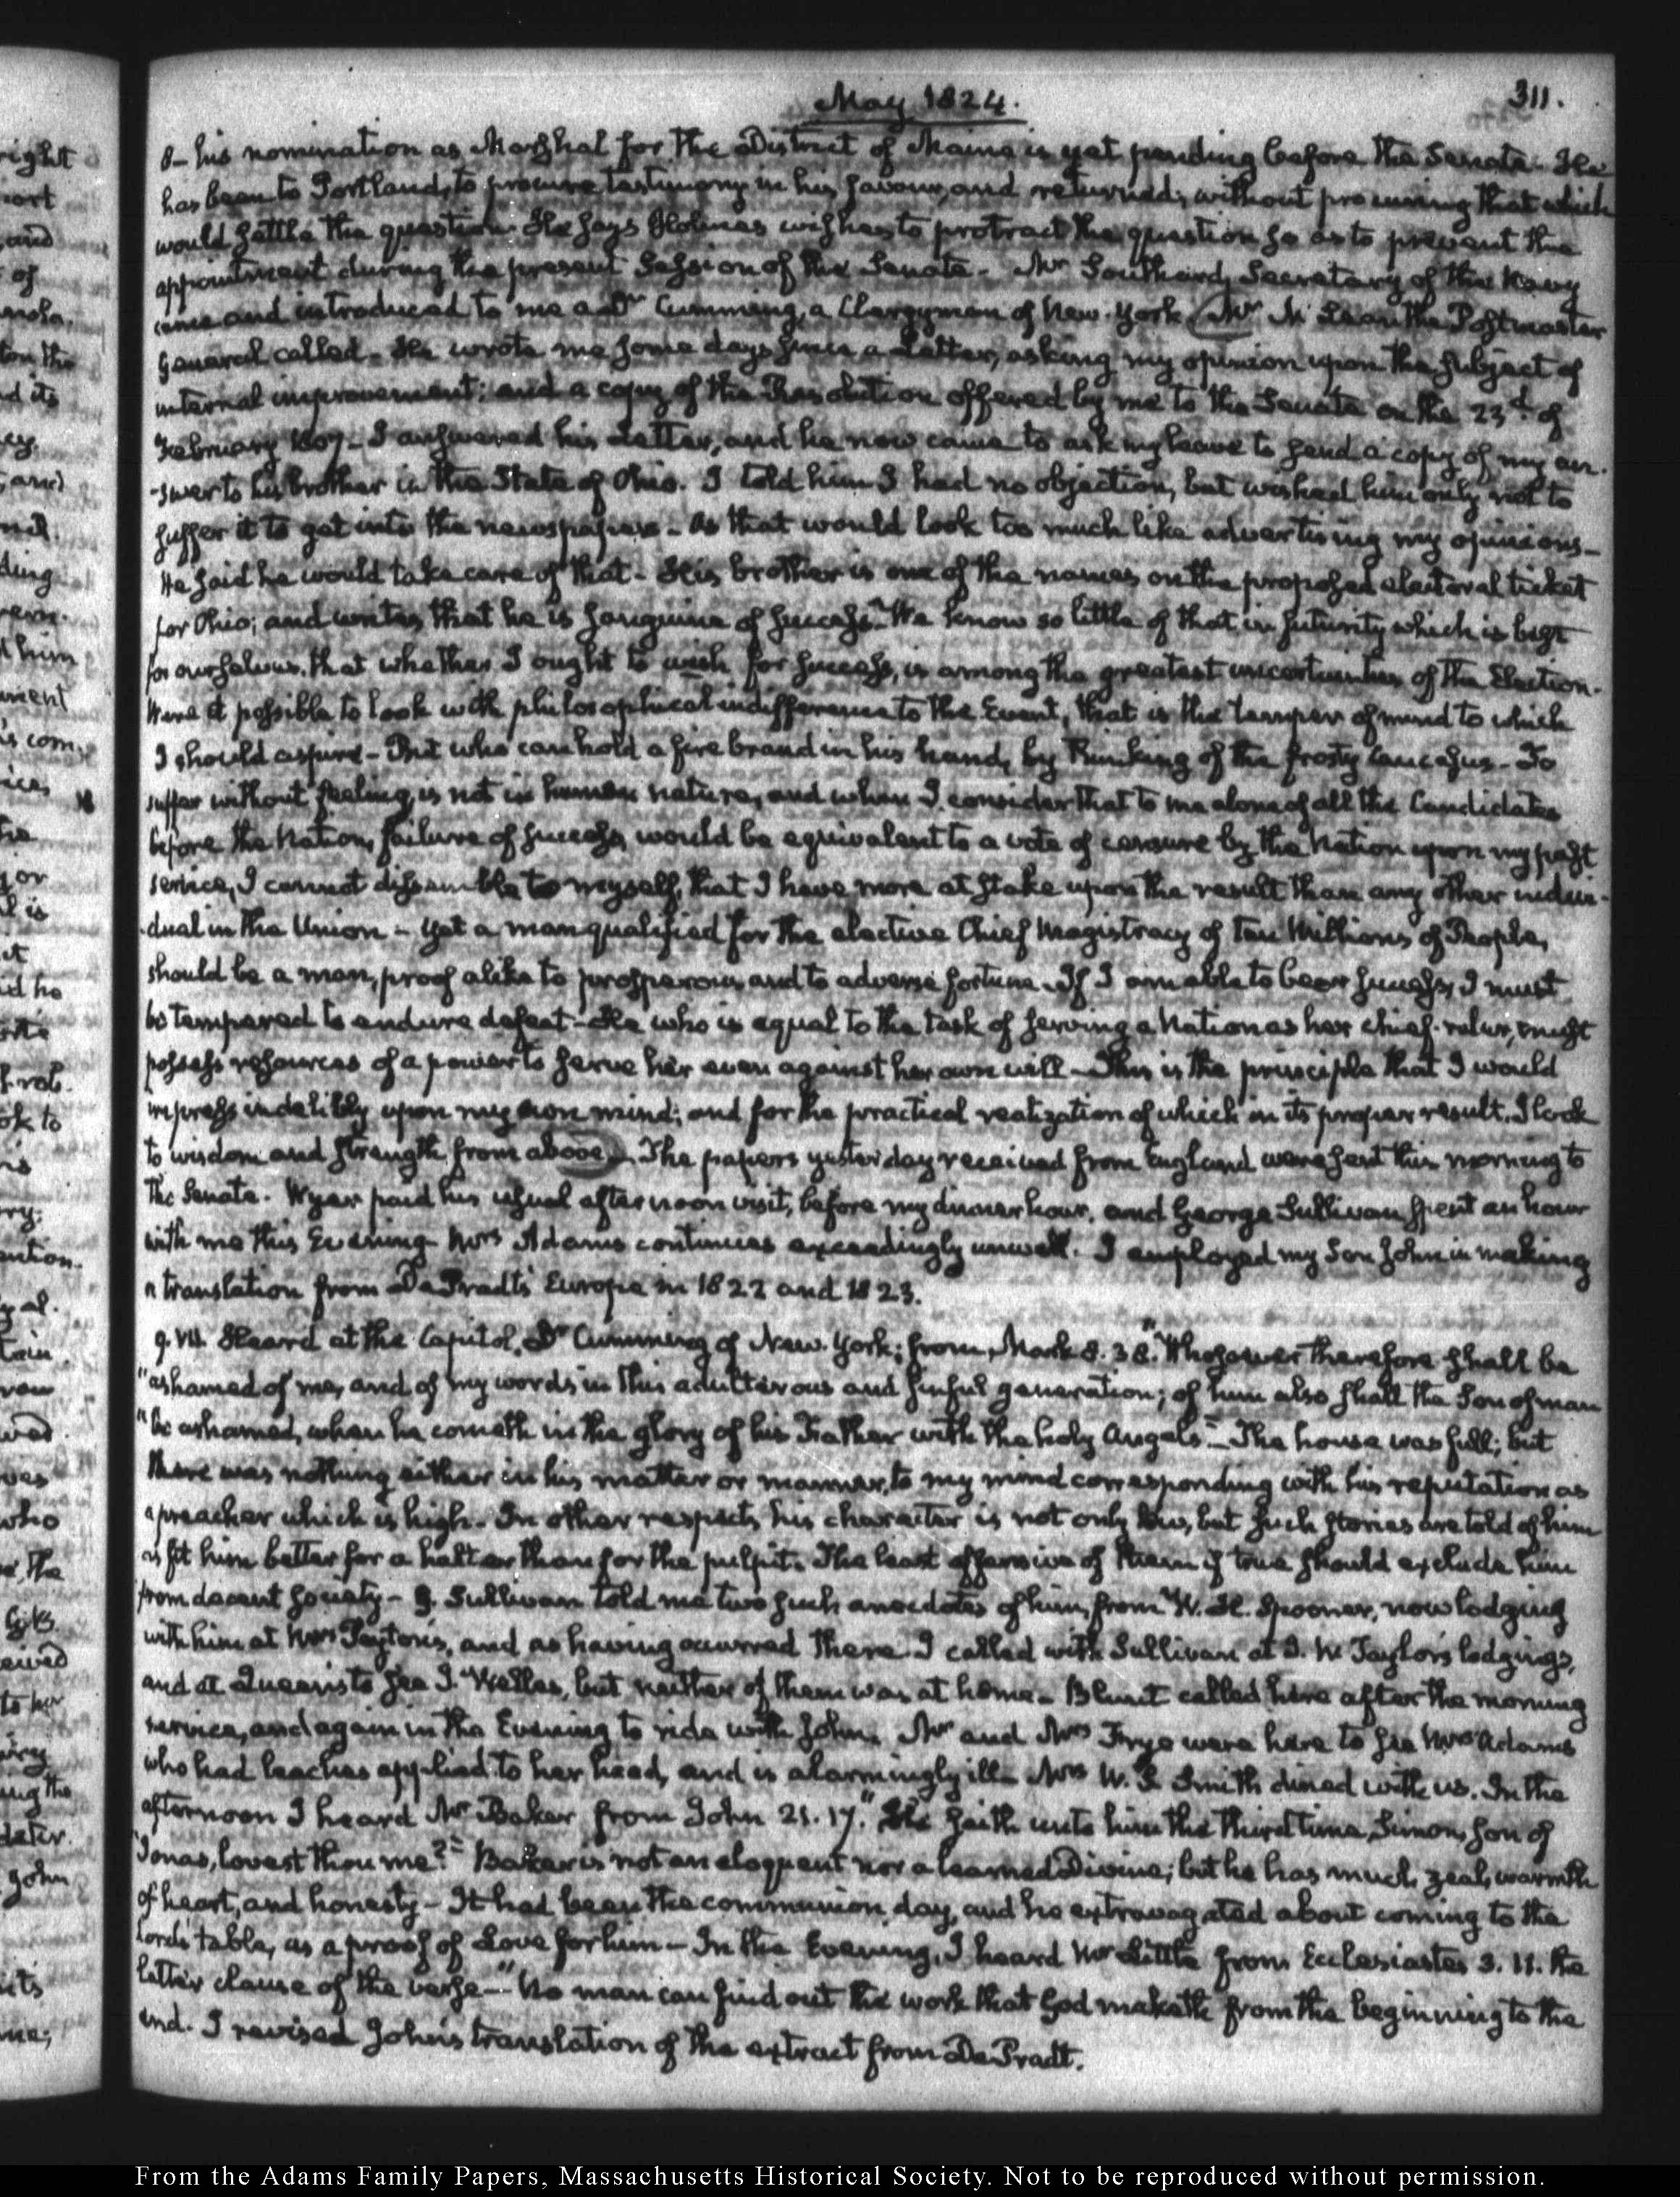 May 1824.
311.
8— his nomination as Marshal for the District of Maine is yet pending before the Senate— He
has been to Portland, to procure testimony in his favour, and returned, without procuring that which
would settle the question. He says Holmes wishes to protract the question so as to prevent the
appointment during the present Session of the Senate— Mr Southard, Secretary of the Navy
came and introduced to me a Dr Cumming, a Clergyman of New-York (Mr McLean the Postmaster
General called— He wrote me some days since a Letter, asking my opinion upon the subject of
internal improvement; and a copy of the Resolution offered by me to the Senate on the 23d. of
February 1807— I answered his Letter, and he now came to ask my leave to send a copy of my an-
-swer to his brother in the State of Ohio. I told him I had no objection, but wished him only not to
suffer it to get into the newspapers— As that would look too much like advertising my opinions—
He said he would take care of that— His brother is one of the names on the proposed electoral ticket
for Ohio; and writes that he is sanguine of success— We know so little of that in futurity which is best
for ourselves, that whether I ought to wish for success, is among the greatest uncertainties of the Election.
Were it possible to look with philosophical indifference to the Event, that is the temper of mind to which
I should aspire— But who can hold a fire brand in his hand, by thinking of the frosty Caucasus— To
suffer without feeling is not in human nature, and when I consider that to me alone of all the Candidates
before the Nation, failure of success would be equivalent to a vote of censure by the Nation upon my past
service, I cannot dissemble to myself, that I have more at stake upon the result than any other indivi-
-dual in the Union— Yet a man qualified for the elective Chief Magistracy of ten Millions of People,
should be a man, proof alike to prosperous and to adverse fortune. If I am able to bear success, I must
be tempered to endure defeat— He who is equal to the task of serving a Nation as her chief-ruler, must
possess resources of a power to serve her even against her own will— This is the principle that I would
impress indelibly upon my own mind; and for the practical realization of which in its proper result, I look
to wisdom and strength from above)— The papers yesterday received from England were sent this morning to
the Senate. Wyer paid his usual afternoon visit, before my dinner hour, and George Sullivan spent an hour
with me this Evening— Mrs Adams continues exceedingly unwell. I employed my Son John in making
a translation from De Pradt's Europe in 1822 and 1823.
9. VII. Heard at the Capitol, Dr Cumming of New-York; from Mark 8. 38. "Whosoever therefore shall be
"ashamed of me, and of my words in this adulterous and sinful generation; of him also shall the Son of man
"be ashamed, when he cometh in the glory of his Father with the holy Angels"— The house was full; but
there was nothing either in his matter or manner, to my mind corresponding with his reputation as
a preacher which is high— In other respects, his character is not only low, but such stories are told of him
as fit him better for a halter than for the pulpit. The least offensive of them if true should exclude him
from decent society— G. Sullivan told me two such anecdotes of him, from W. H. Spooner, now lodging
with him at Mrs Peyton's, and as having occurred there. I called with Sullivan at J. W. Taylor's lodgings,
and at Queen's to see J. Welles, but neither of them was at home— Blunt called here after the morning
service, and again in the Evening to ride with John. Mr and Mrs Frye were here to see Mrs Adams
who had leaches applied to her head, and is alarmingly ill— Mrs W. S. Smith dined with us. In the
afternoon I heard Mr Baker from John 21. 17. "He saith unto him the third time, Simon, Son of
"Jonas, lovest thou me?" Baker is not an eloquent nor a learned Divine; but he has much zeal, warmth
of heart, and honesty— It had been the communion day, and he extravagated about coming to the
Lord's table, as a proof of Love for him— In the Evening, I heard Mr Little from Ecclesiastes 3. 11. the
latter clause of the verse— "No man can find out the work that God maketh from the beginning to the
end. I revised John's translation of the extract from De Pradt.
From the Adams Family Papers, Massachusetts Historical Society. Not to be reproduced without permission.